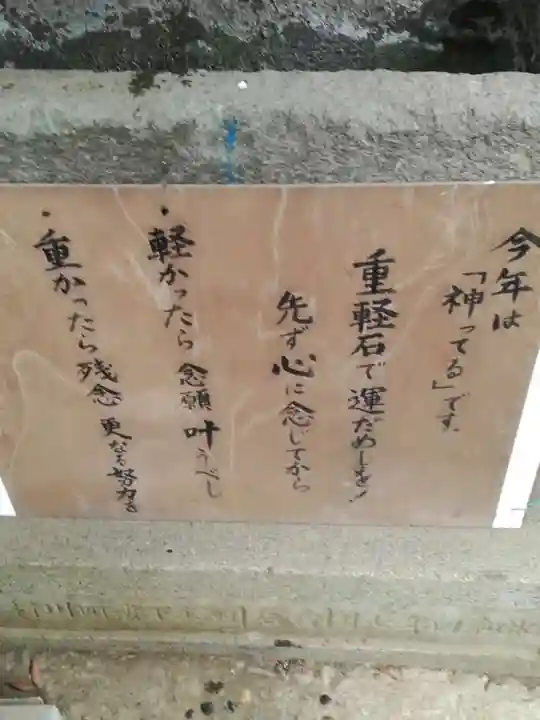 今年は
「神ってる」です。
重軽石で運だめしを！
先ず心に念じてから
・軽かったら念願叶うべし
・重かったら残念更なる努力を